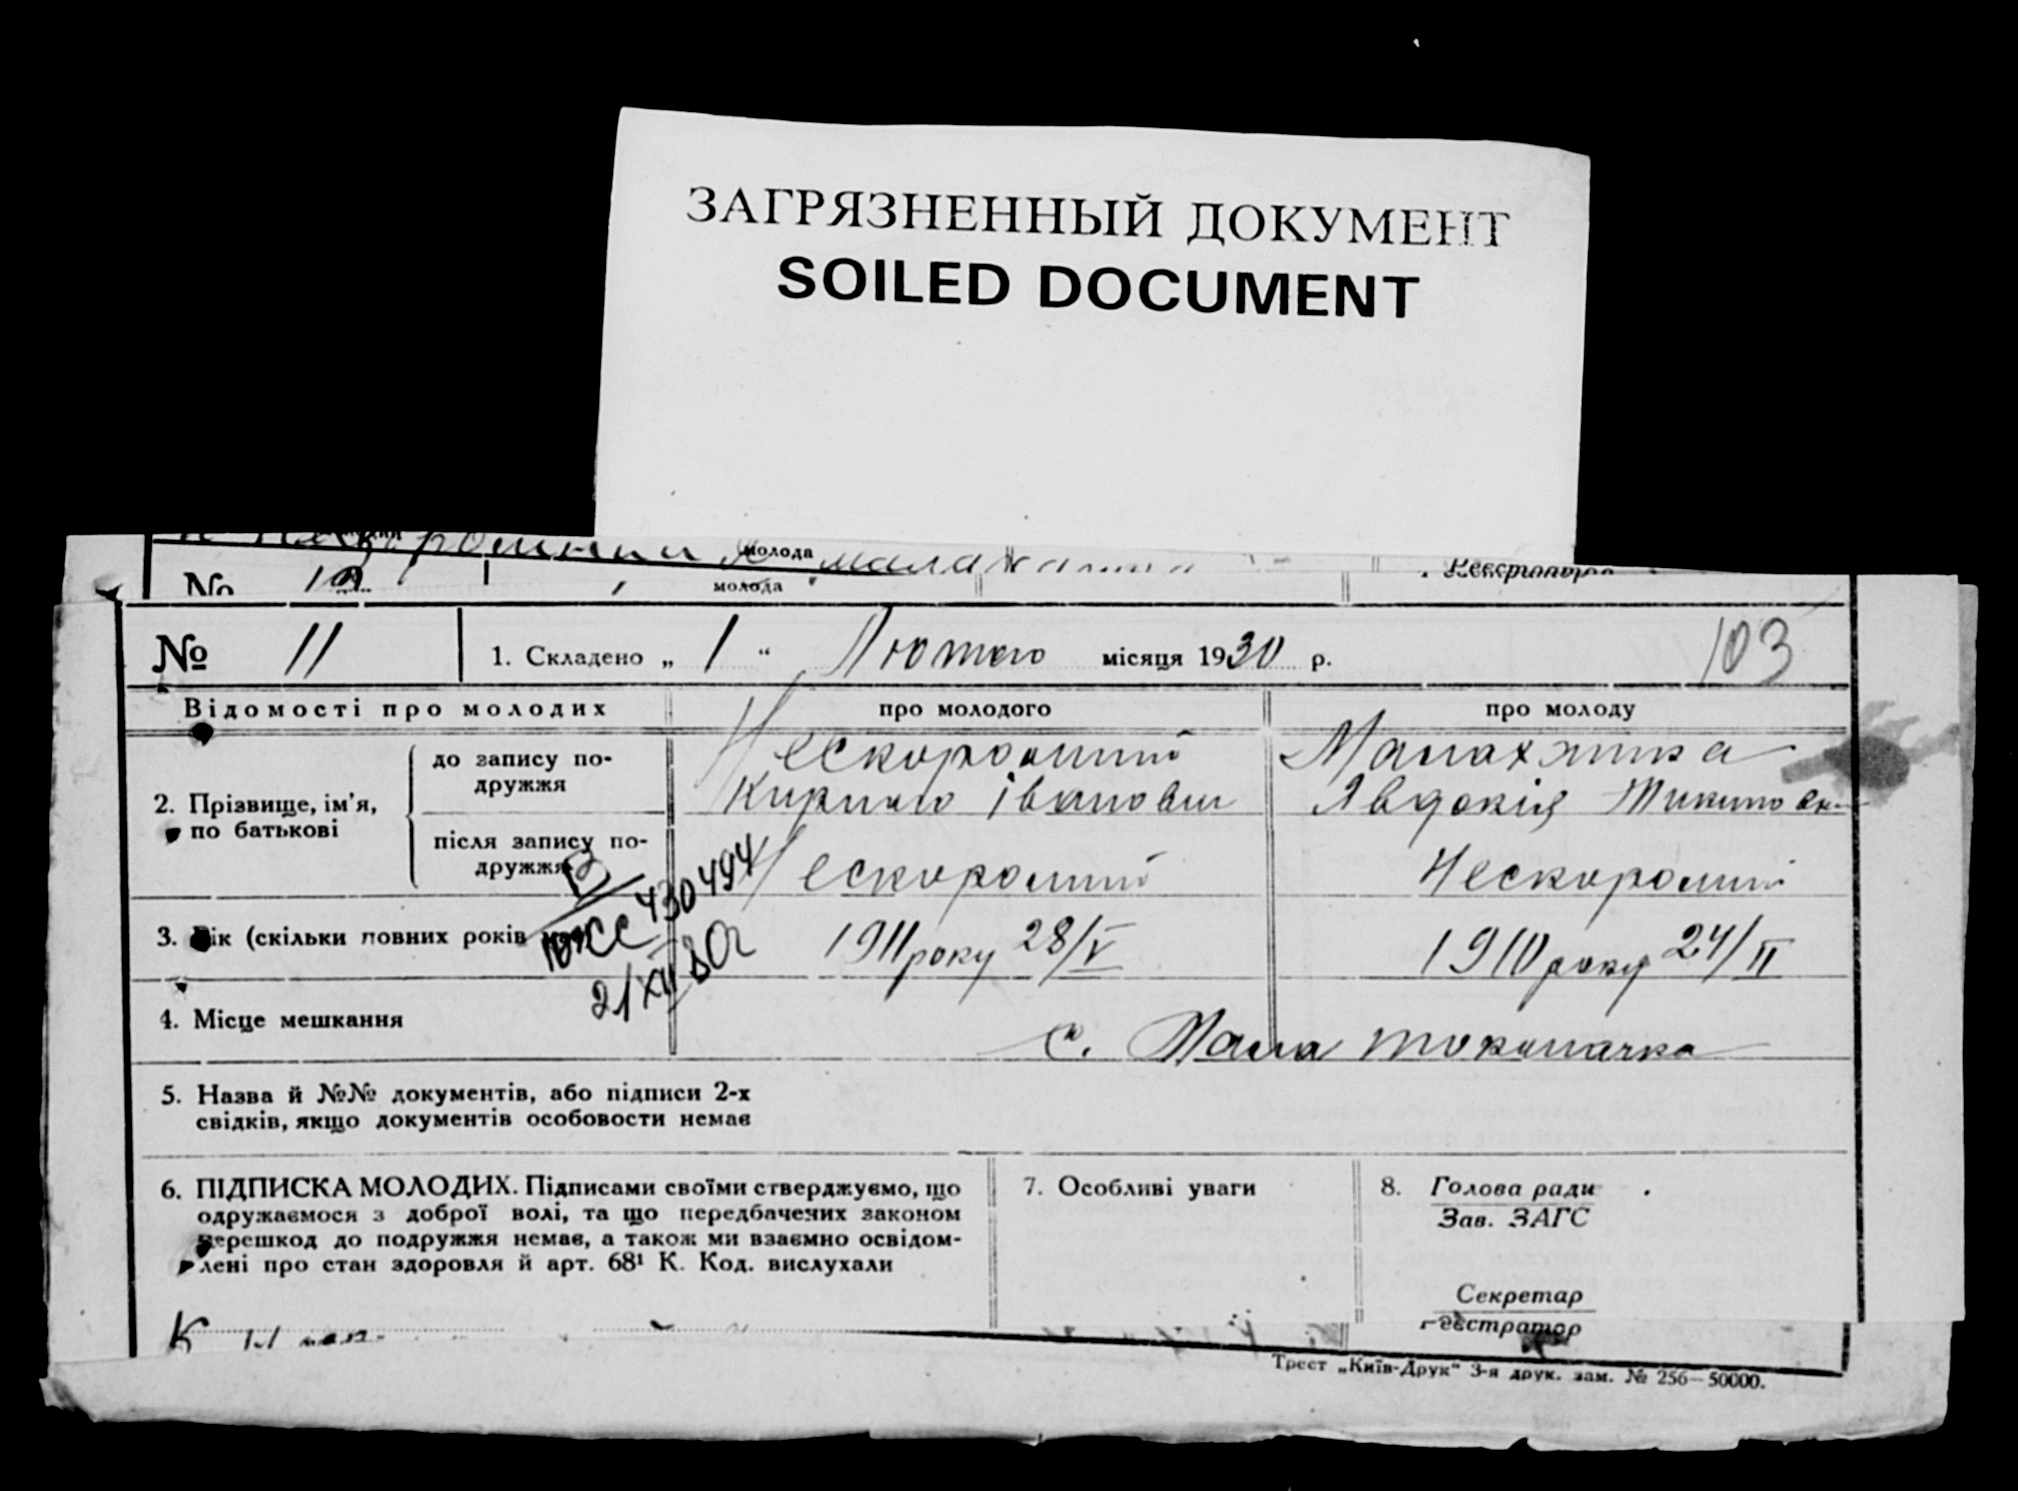 ЗАГРЯЗНЕННЫЙ ДОКУМЕНТ
SOILED DOCUMENT
молода
№
молода
Реєстратор
№ 11
1. Складено „ 1 “ Лютого місяця 1930 р.
103
Відомості про молодих
про молодого
про молоду
2. Прізвище, ім’я, по батькові
до запису по-
дружжя
Нескоромний
Кирило Іванович
Малахатка
Явдокія
після запису по-
дружжя
Нескоромний
Нескоромний
3. Вік (скільки повних років
1911 року 28/V
1910 року 24/II
430494
21/XII 80г
4. Місце мешкання
с. Мала Токмачка
5. Назва й №№ документів, або підписи 2-х
свідків, якщо документів особовости немає
6. ПІДПИСКА МОЛОДИХ. Підписами своїми стверджуємо, що
одружаємося з доброї волі, та що передбачених законом
перешкод до подружжя немає, а також ми взаємно освідом-
лені про стан здоровля й арт. 68¹ К. Код. вислухали
7. Особливі уваги
8. Голова ради
Зав. ЗАГС
Секретар
Реєстратор
Трест „Київ-Друк“ 3-я друк. зам. № 256—50000.